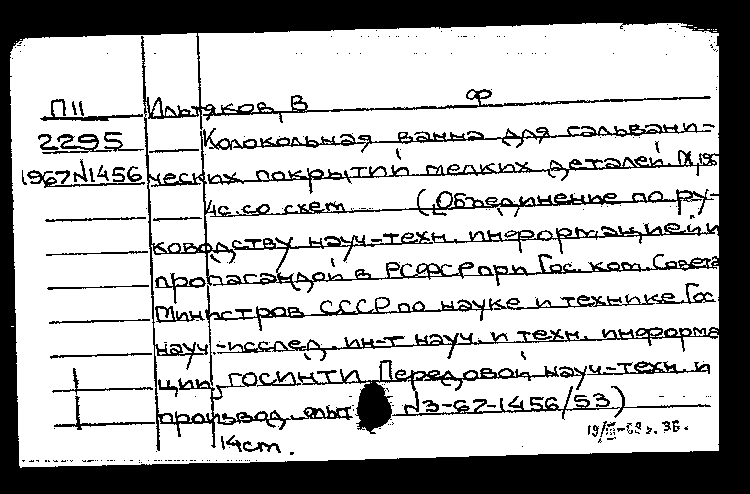 П11 Ильтяков, В Ф
2295 Колокольная ванна для гальвани-
1967 N1456 ческих покрытий мелких деталей. М, 196
4с. со схем. (Объединение по ру-
ководству науч-техн. информацией и
пропагандой в РСФСР при Гос. ком. Совета
Министров СССР по науке и технике. Гос.
науч-исслед. ин-т науч. и техн. информа
ции, ГОСИНТИ Передовой науч-техн. и
производ. опыт N3-67-1456/53)
14ст.